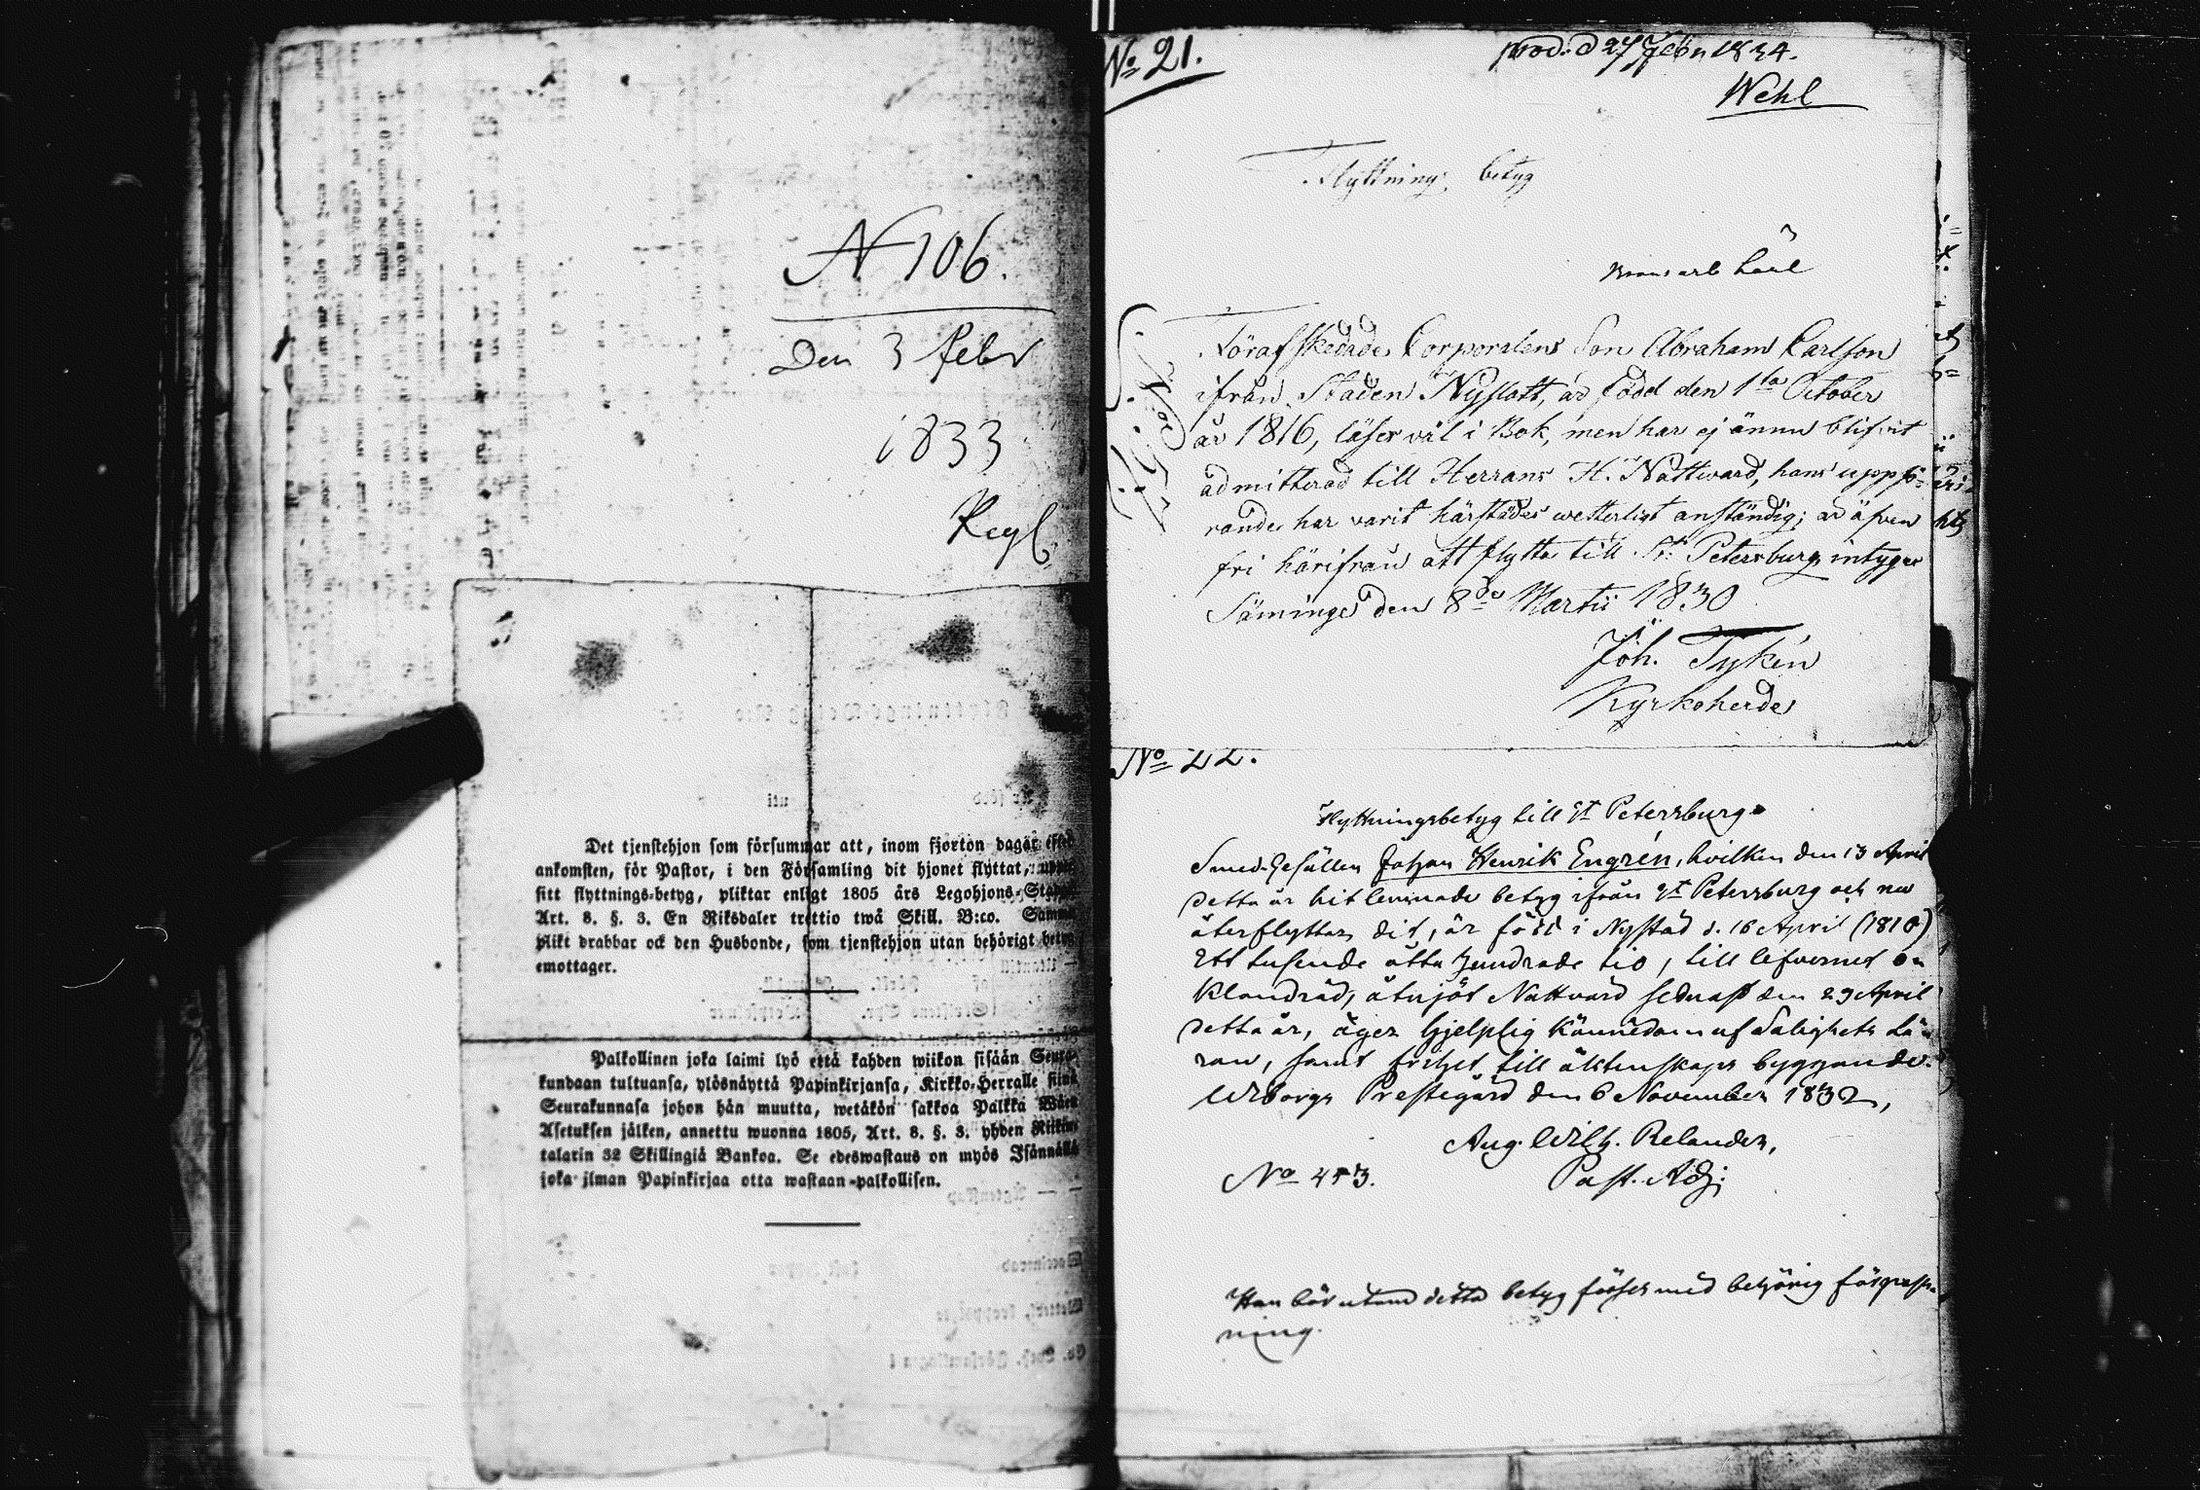 N 106.
Den 3 Febr
1833
Det tjenstehjon som försummar att, inom fjorton dagar efter
ankomsten, för Pastor, i den Församling dit hjonet flyttat,
sitt flyttnings-betyg, pliktar enligt 1805 års Legohjons-
Art. 8. §. 3. En Riksdaler trettio twå Skill. B:co. Samma
plikt drabbar ock den Husbonde, som tjenstehjon utan behörigt betyg
emottager.
Palkollinen joka laimi lyö että kahden wiikon sisään Seura-
kundaan tultuansa, ylösnäyttä Papinkirjansa, Kirkko-Herralle siinä
Seurakunnasa johon hän muutta, wetäkön sakkoa Palkka Wäen
Asetuksen jälken, annettu wuonna 1805, Art. 8. §. 3. yhden Riikin
talarin 32 Skillingiä Bankoa. Se edeswastaus on myös Isännällä
joka ilman Papinkirjaa otta wastaan palkollisen.
No 21.
prod. d 27 Febr 1834.
Wehl
Flyttnings betyg
Förafskedade Corporalens Son Abraham Carlson
ifrån Staden Nyslott, är född den 1sta October
år 1816, läser väl i Bok, men har ej ännu blifvit
admitterad till Herrans H. Nattward, hans uppfö-
rande har varit härstädes wetterligt anständig; är äfven
fri härifrån att flytta till St. Petersburg intygar
Säminge den 8de Martii 1830
Joh. Tykén
Kyrkoherde
No 22.
Flyttningsbetyg till St Petersburg
Smed-Gesällen Johan Henrik Engrén, hvilken den 13 April
detta år hit lemnade betyg ifrån St Petersburg och nu
återflyttar dit, är född i Nystad d. 16 April (1810)
Ett tusende åtta hundrade tio, till lefvernet o-
klandrad, åtnjöt Nattvard sednast den 29 April
detta år, äger hjelplig kännedom af Salighets Lä-
ran, samt frihet till äktenskaps byggande.
Wiborgs Prestegård den 6 November 1832,
Aug. Wilh. Relander,
Past. Adj:
No 453.
Han bör utom detta betyg förses med behörig förpass-
ning.